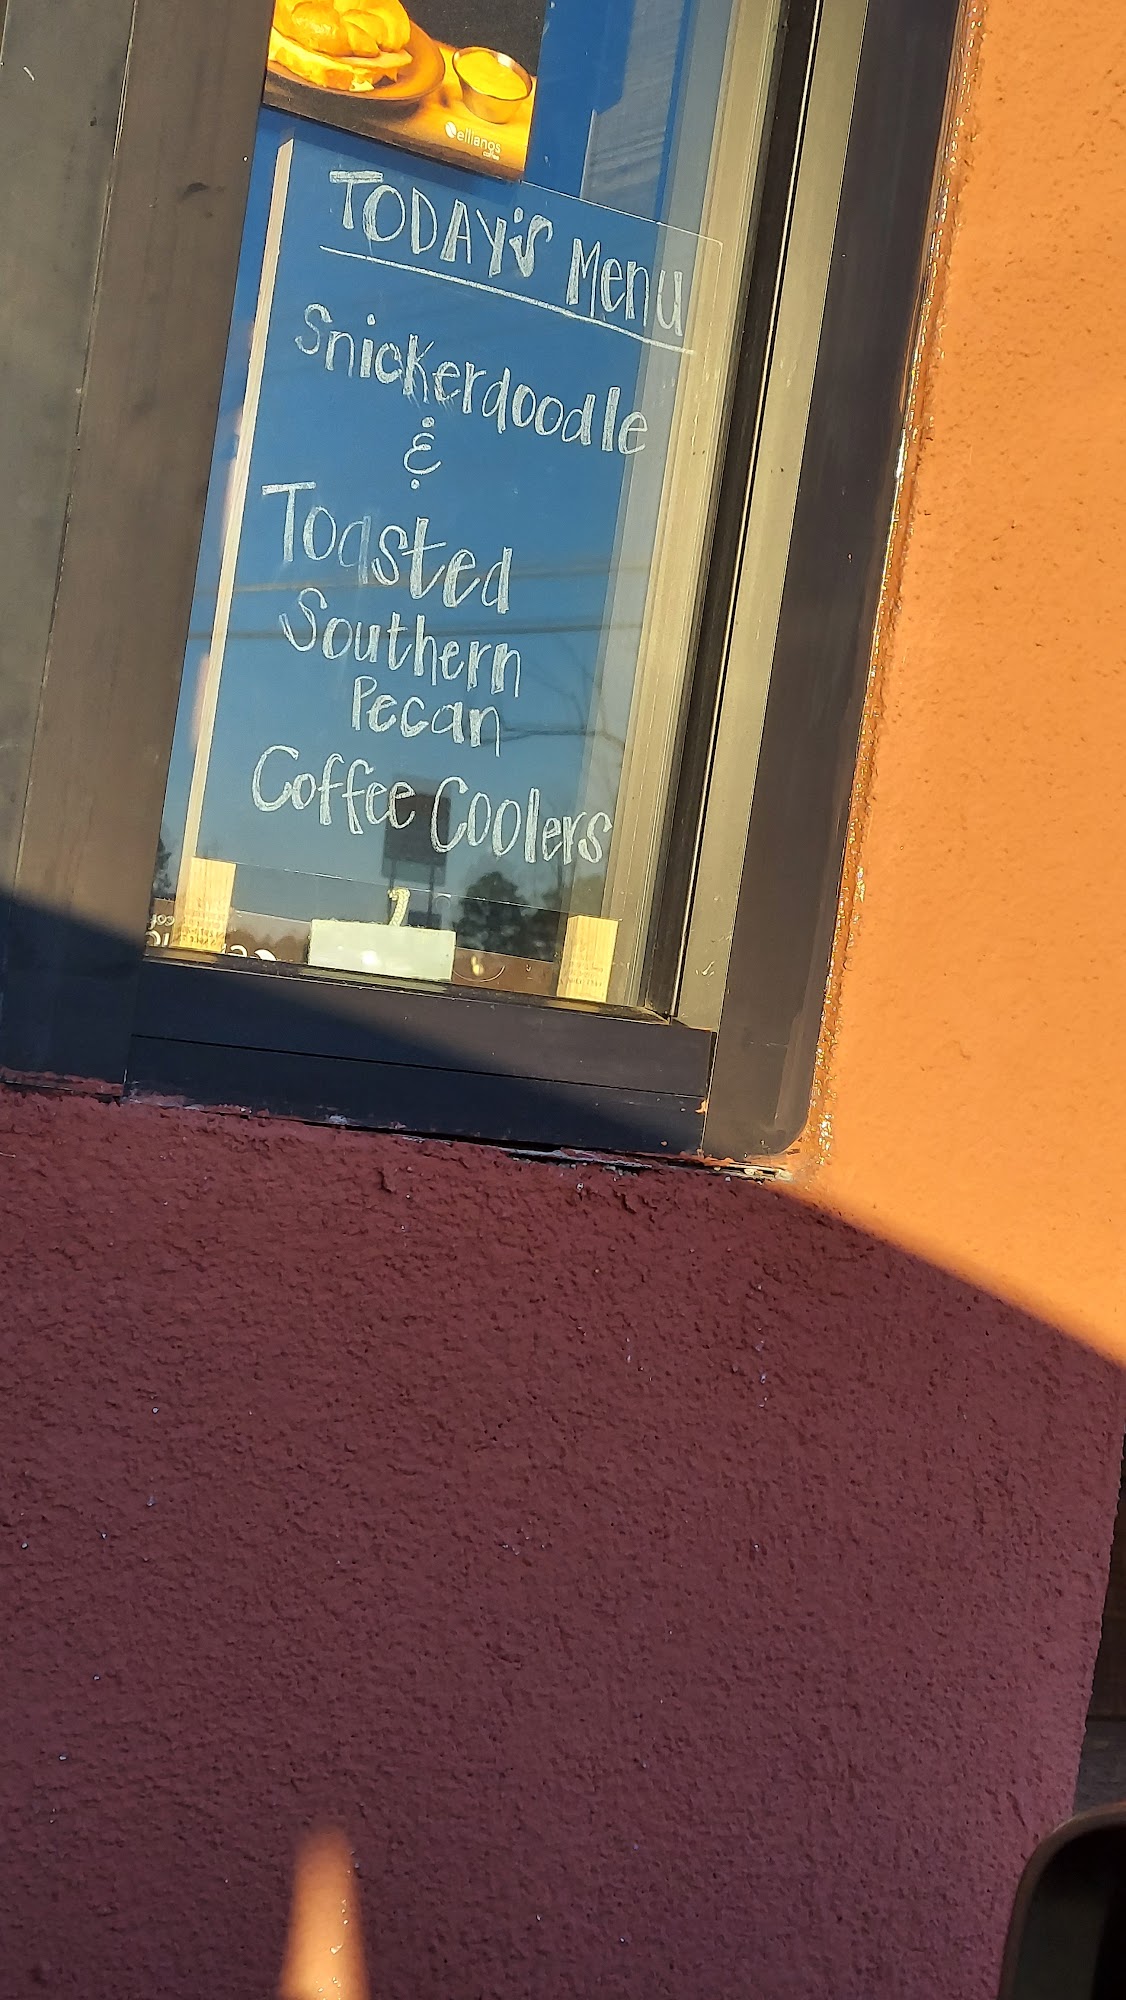 ellianos
coffee
TODAY'S Menu
Snickerdoodle
&
Toasted
Southern
Pecan
Coffee Coolers